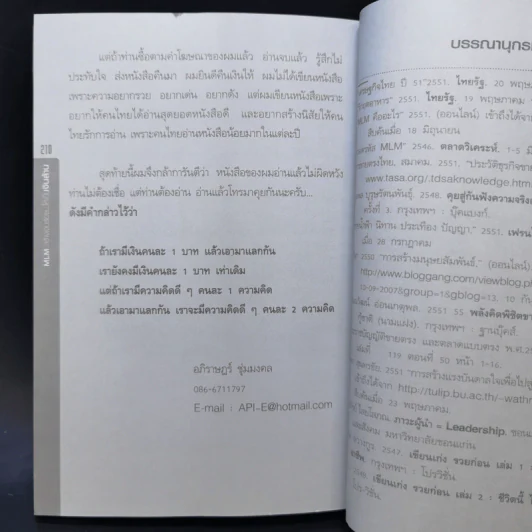 แต่ถ้าท่านซื้อตามคำโฆษณาของผมแล้ว อ่านจบแล้ว รู้สึกไม่
ประทับใจ ส่งหนังสือคืนมา ผมยินดีคืนเงินให้ ผมไม่ได้เขียนหนังสือ
เพราะความอยากรวย อยากเด่น อยากดัง แต่ผมเขียนหนังสือเพราะ
อยากให้คนไทยได้อ่านสุดยอดหนังสือดี และอยากสร้างนิสัยให้คน
ไทยรักการอ่าน เพราะคนไทยอ่านหนังสือน้อยมากในแต่ละปี
210
สุดท้ายนี้ผมจึงกล้าการันตีว่า หนังสือของผมอ่านแล้วไม่ผิดหวัง
ท่านไม่ต้องเชื่อ แต่ท่านต้องอ่าน อ่านแล้วโทรมาคุยกันนะครับ...
ดังมีคำกล่าวไว้ว่า
MLM
ถ้าเรามีเงินคนละ 1 บาท แล้วเอามาแลกกัน
เรายังคงมีเงินคนละ 1 บาท เท่าเดิม
แต่ถ้าเรามีความคิดดี ๆ คนละ 1 ความคิด
แล้วเอามาแลกกัน เราจะมีความคิดดี ๆ คนละ 2 ความคิด
อภิราษฎร์ ชุ่มมงคล
086-6711797
E-mail : API-E@hotmail.com
บรรณานุกร
ปี 51"2551. ไทยรัฐ. 20 พฤษ
2551. ไทยรัฐ. 19 พฤษภาคม
MLM คืออะไร" 2551. (ออนไลน์) เข้าถึงได้จาก
สืบค้นเมื่อ 18 มิถุนายน
MLM" 2551. ตลาดวิเคราะห์. 1-5 มี
สมาคม. 2551. "ประวัติธุรกิจขาย
www.tdsa.org/.tdsaknowledge.htm
บุรุษรัตนพันธุ์. 2548. คุยสู่กันฟังความจริง
ครั้งที่ 3. กรุงเทพฯ : บุ๊คแบงก์.
นิทาน ประเทือง ปัญญา," 2551. เฟรน
เมื่อ 26 กรกฎาคม
2550 "การสร้างมนุษยสัมพันธ์," (ออนไลน์)
http://www.bloggang.com/viewblog.p
-09-2007&group=15&gblog=13. 10 กัน
อ่อนยาตุพล. 2551 55 พลังคิดพิชิต
(นามแฝง). กรุงเทพฯ : ฐานบุ๊คส์.
บัญญัติขายตรง และตลาดแบบตรง พ.ศ.
เล่มที่ 119 ตอนที่ 50 หน้า 1-16.
2551 "การสร้างแรงบันดาลใจเพื่อไปสู่
http://tulip.bu.ac.th/~wathn
เมื่อ 23 พฤษภาคม.
ภาวะผู้นำ = Leadership. ขอนแ
มหาวิทยาลัยขอนแก่น.
2547. เขียนเก่ง รวยก่อน เล่ม 1
กรุงเทพฯ : โปรวิชั่น.
2548. เขียนเก่ง รวยก่อน เล่ม 2 : ชีวิตนี้
โปรวิชั่น.